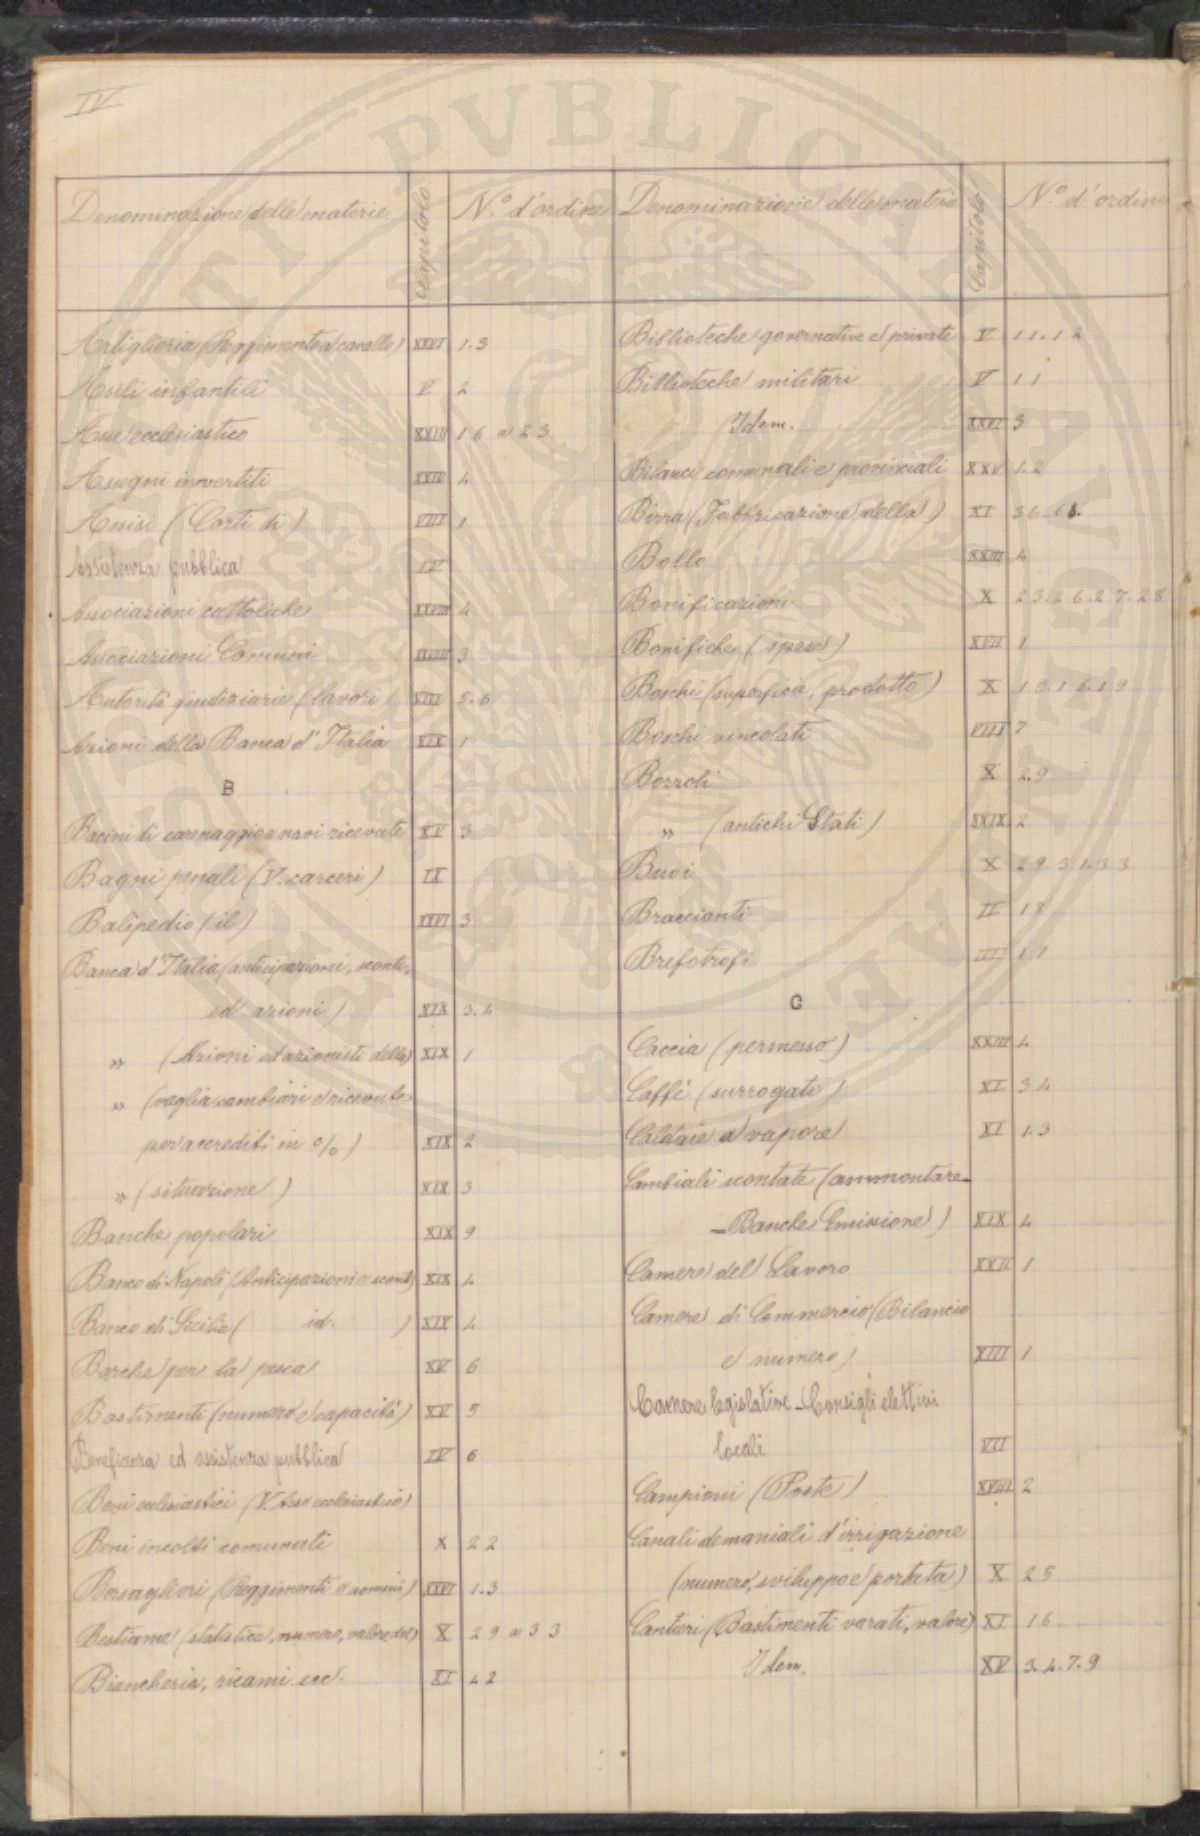 IV
Denominazione delle materie Capitolo N.º d'ordine
Artiglieria (Reggimento a cavallo) XXVI 1.3
Asili infantili V 2
Asse ecclesiastico XXIII 16 a 23
Assegni invertiti XXIII 4
Assise (Corti di) VIII 1
Assistenza pubblica IV
Associazioni cattoliche XXVIII 4
Associazioni Comuni XXVIII 3
Autorità giudiziarie (lavori) VIII 5.6
Azioni della Banca d'Italia XIX 1
B
Bacini di carenaggio e navi ricevute XV 3
Bagni penali (V. carceri) IX
Balipedio (il) XXVI 3
Banca d'Italia (anticipazioni, sconti,
ed azioni) XIX 3.4
„ (Azioni ed azionisti della) XIX 1
„ (vaglia cambiari e ricevute
per accrediti in %) XIX 2
„ (situazione) XIX 3
Banche popolari XIX 9
Banco di Napoli (Anticipazioni e sconti) XIX 4
Banco di Sicilia ( id. ) XIX 4
Barche per la pesca XV 6
Bastimenti (numero e capacità) XV 5
Beneficenza ed assistenza pubblica IV 6
Beni ecclesiastici (V. Asse ecclesiastico)
Beni incolti comunali X 22
Bersaglieri (Reggimenti e uomini) XXVI 1.3
Bestiame (statistica, numero, valore del) X 29 a 33
Biancheria, ricami ecc. XI 42
Denominazione delle materie Capitolo N.º d'ordine
Biblioteche governative e private V 11.12
Biblioteche militari V 11
Idem. XXVI 3
Bilanci comunali e provinciali XXV 1.2
Birra (Fabbricazione della) XI 36.
Bollo XXIII 4
Bonificazioni X 23.26.27.28
Bonifiche (spese) XVII 1
Boschi (superficie, prodotto) X 15.16.19
Boschi vincolati VIII 7
Bozzoli X 2.9
„ (antichi Stati) XXIX 2
Buoi X 29.31.33
Braccianti II 18
Brefotrofi III 17
C
Caccia (permesso) XXIII 4
Caffè (surrogati) XI 34
Caldaie a vapore XI 1.3
Cambiali scontate (ammontare-
-Banche Emissione) XIX 4
Camere del Lavoro XXII 1
Camere di Commercio (Bilancio
e numero) XIII 1
Camere legislative - Consigli elettivi
locali VII
Campioni (Poste) XVIII 2
Canali demaniali d'irrigazione
(numero, sviluppo e portata) X 25
Cantieri (Bastimenti varati, valore) XI 16
Idem. XV 3.4.7.9